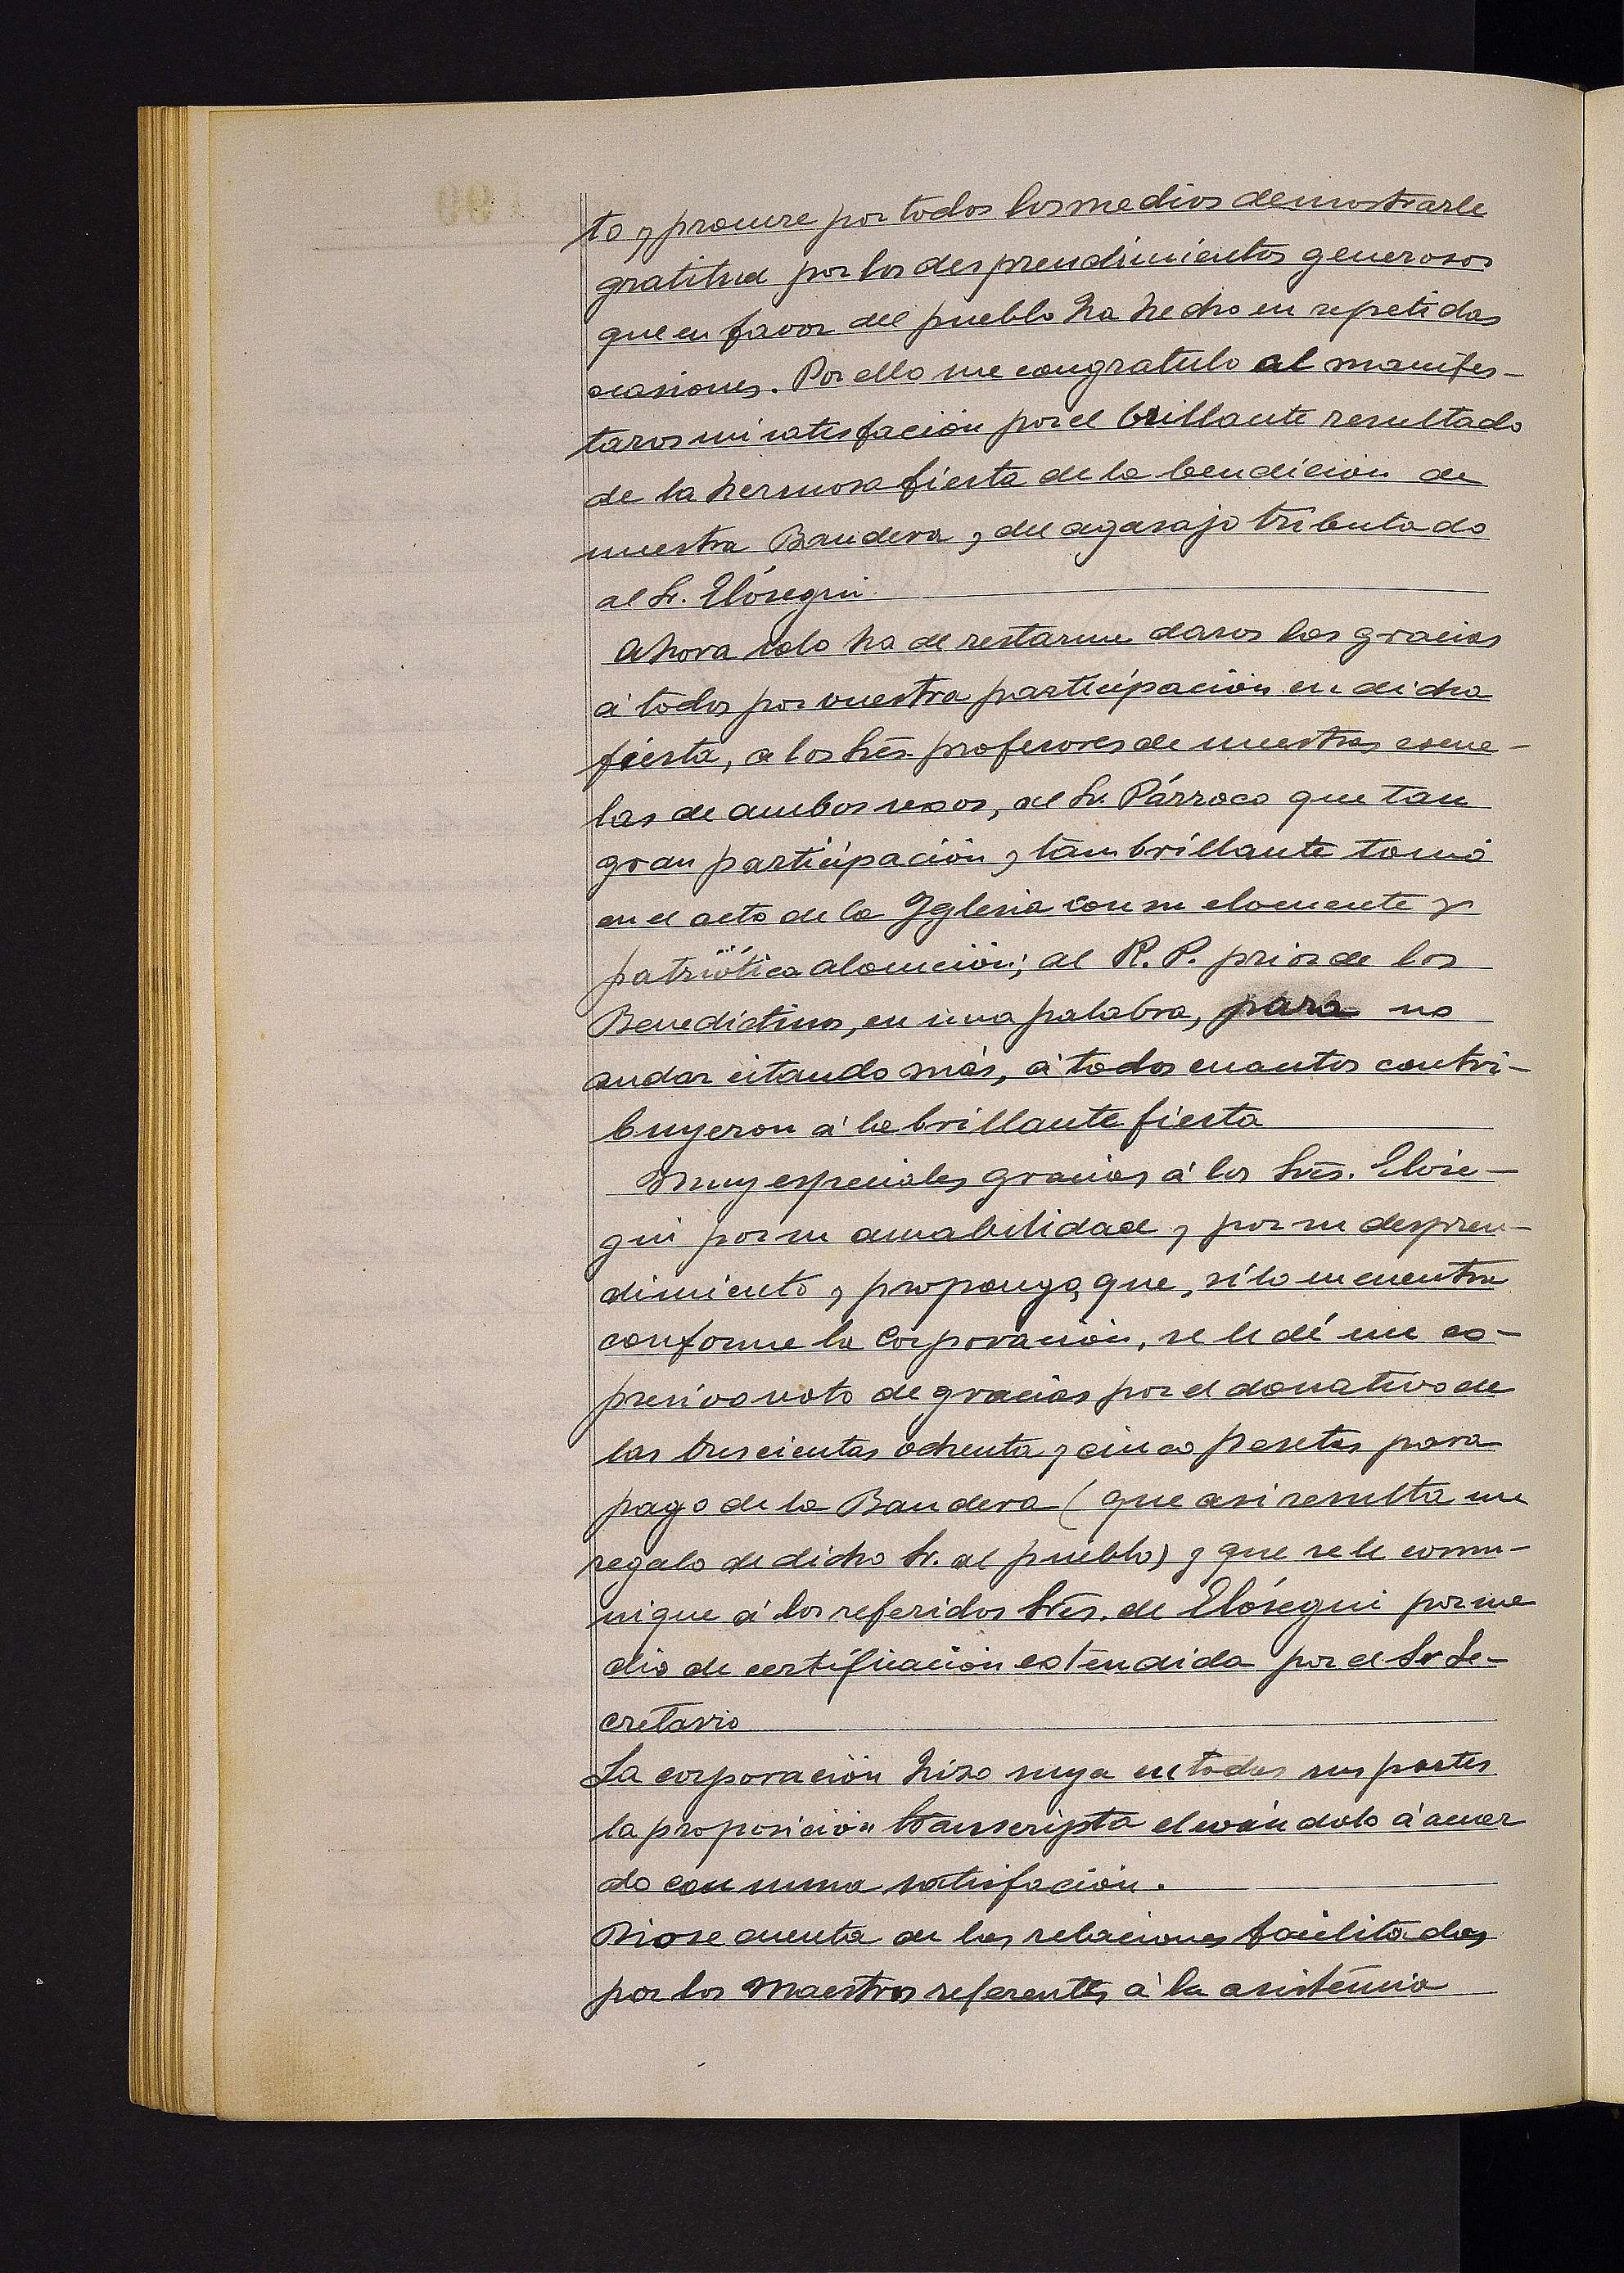 to y procure por todos los medios demostrarle
gratitud por los desprendimientos generosos
que en favor del pueblo ha hecho en repetidas
ocasiones. Por ello me congratulo al manifes-
taros mi satisfación por el brillante resultado
de la hermosa fiesta de la bendición de
nuestra Bandera y del agasajo tributado
al Sr. Elósegui.
Ahora solo ha de restarme daros las gracias
á todos por vuestra participación en dicha
fiesta, a los Sres. profesores de nuestras escue-
las de ambos sexos, al Sr. Párroco que tan
gran participación y tan brillante tomó
en el acto de la Yglesia con su elocuente y
patriótica alocución; al R. P. prior de los
Benedictinos, en una palabra, para no
andar citando más, á todos cuantos contri-
buyeron á la brillante fiesta
Muy especiales gracias á los Sres. Elose-
gui por su amabilidad y por su despren-
dimiento y propongo, que, si lo encuentra
conforme la Corporación, se le dé un ex-
presivo voto de gracias por el donativo de
las trescientas ochenta y cinco pesetas para
pago de la Bandera (que asi resulta un
regalo de dicho Sr. al pueblo) y que se le comu-
nique á los referidos Sres. de Elósegui por me
dio de certificación extendida por el Sr Se-
cretario
La corporación hizo suya en todas sus partes
la proposición transcripta elevándolo á acuer
do con suma satisfación.
Diose cuenta de las relaciones facilitadas
por los Maestros referentes á la asistencia